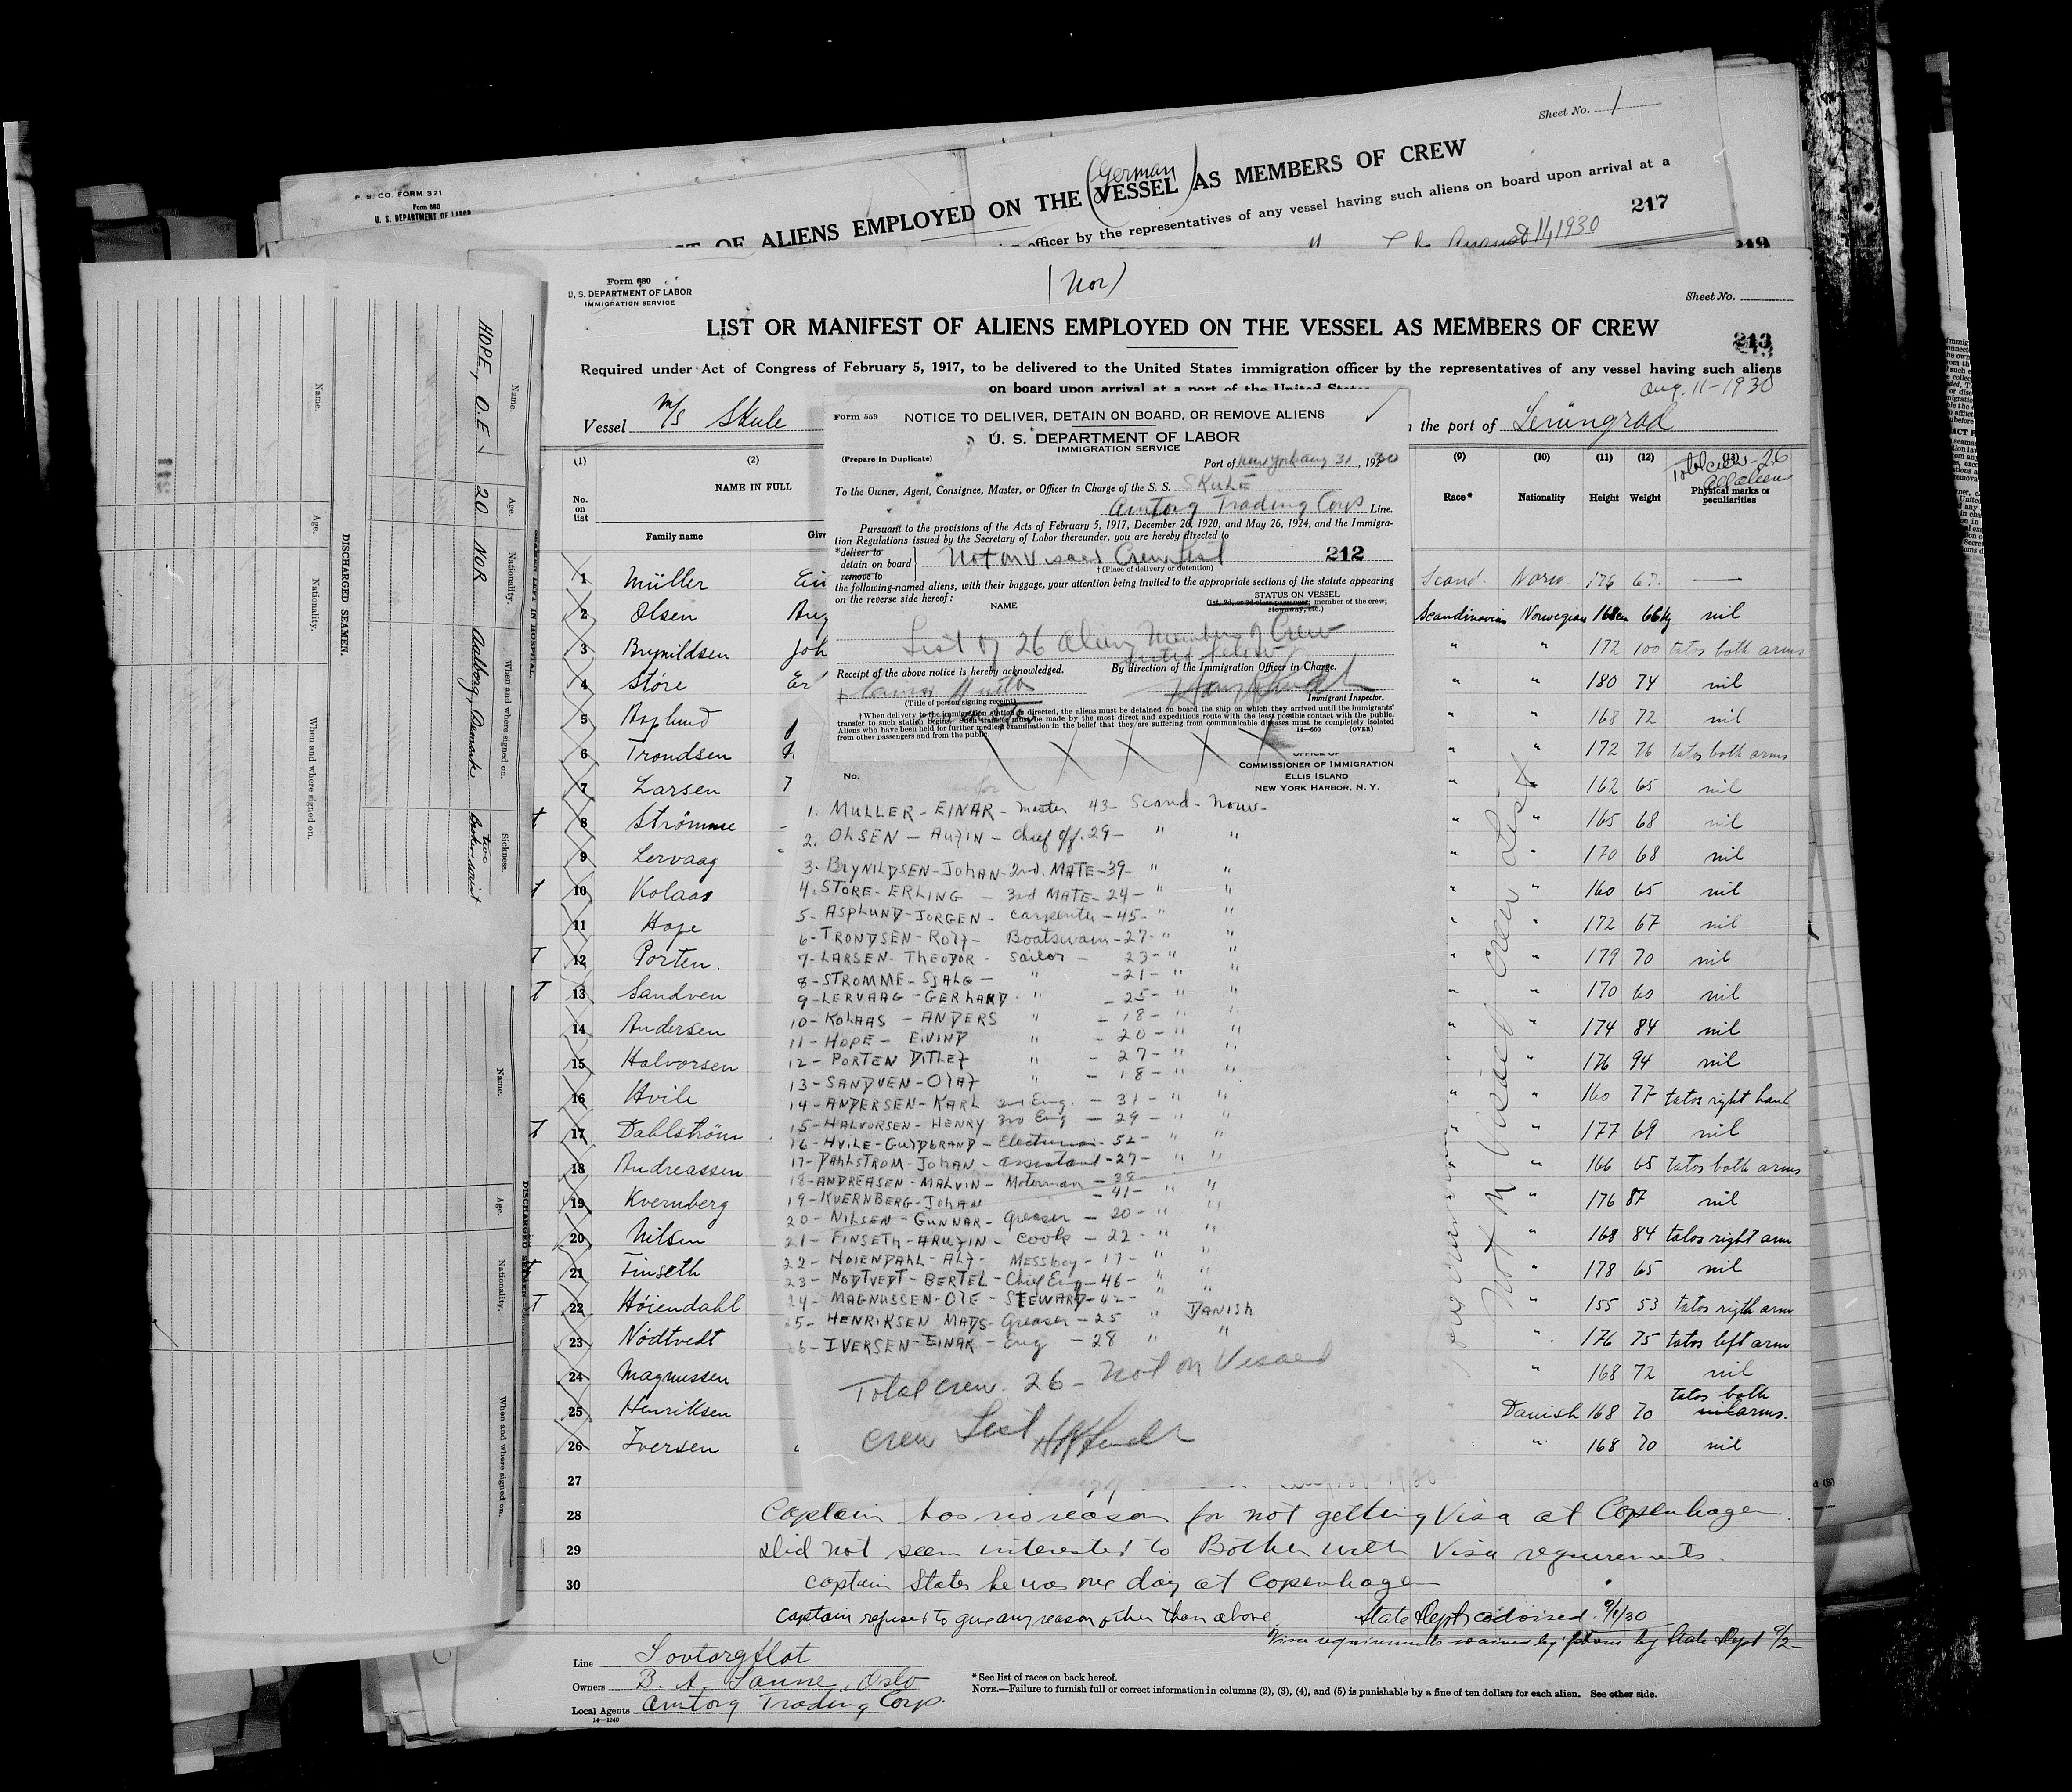 Sheet No. 1
P. S. CO. FORM 321
Form 680
U. S. DEPARTMENT OF LABOR
(German)
OF ALIENS EMPLOYED ON THE VESSEL AS MEMBERS OF CREW
officer by the representatives of any vessel having such aliens on board upon arrival at a
217
August 11, 1930
Form 680
U. S. DEPARTMENT OF LABOR
IMMIGRATION SERVICE
(Nor)
Sheet No.
LIST OR MANIFEST OF ALIENS EMPLOYED ON THE VESSEL AS MEMBERS OF CREW
213
Required under Act of Congress of February 5, 1917, to be delivered to the United States immigration officer by the representatives of any vessel having such aliens
on board upon arrival at a port of the United States
Aug. 11-1930
Vessel M/S Skule
the port of Leningrad
(1) (2) (9) (10) (11) (12) (13)
Total crew - 26
all alien
No. on list NAME IN FULL Race* Nationality Height Weight Physical marks or peculiarities
Family name
1 Müller Scand. Norw. 176 67. —
2 Olsen Scandinavian Norwegian 168cm 66kg nil
3 Brynildsen Joh " " 172 100 tatos both arms
4 Støre Er " " 180 74 nil
5 Asplund " " 168 72 nil
6 Trondsen " " 172 76 tatos both arms
7 Larsen " " 162 65 nil
8 Strömme " " 165 68 nil
9 Lervaag " " 170 68 nil
10 Kolaas " " 160 65 nil
11 Hope " " 172 67 nil
12 Porten " " 179 70 nil
13 Sandven " " 170 60 nil
14 Andersen " " 174 84 nil
15 Halvorsen " " 176 94 nil
16 Hvile " " 160 77 tatos right hand
17 Dahlström " " 177 69 nil
18 Andreassen " " 166 65 tatos both arms
19 Kvernberg " 176 87 nil
20 Nilsen " 168 84 tatos right arm
21 Finseth " 178 65 nil
22 Höiendahl " 155 53 tatos rigth arm
23 Nödtvedt " 176 75 tatos left arm
24 Magnussen " 168 72 nil
25 Henriksen Danish 168 70 tatos both arms.
26 Iversen " 168 70 nil
27
28 Captain has no reason for not getting Visa at Copenhagen.
29 Did not seem interested to Bother with Visa requirements.
30 Captain States he was one day at Copenhagen
Captain refused to give any reason other than above State Dept. advised 9/1/30
Visa requirements waived by phone by State Dept 9/2-
Not on Visaed Crew List
Line Sovtorgflot
Owners B. A. Sanne, Oslo
Local Agents Amtorg Trading Corp.
14-1240
* See list of races on back hereof.
NOTE.—Failure to furnish full or correct information in columns (2), (3), (4), and (5) is punishable by a fine of ten dollars for each alien. See other side.
Form 559
NOTICE TO DELIVER, DETAIN ON BOARD, OR REMOVE ALIENS
U. S. DEPARTMENT OF LABOR
IMMIGRATION SERVICE
(Prepare in Duplicate)
Port of New York Aug 31, 1930
To the Owner, Agent, Consignee, Master, or Officer in Charge of the S. S. SKULE
Amtorg Trading Corp Line.
Pursuant to the provisions of the Acts of February 5, 1917, December 26, 1920, and May 26, 1924, and the Immigra-
tion Regulations issued by the Secretary of Labor thereunder, you are hereby directed to
*deliver to
detain on board
remove to
Not on Visaed Crew List 212
†(Place of delivery or detention)
the following-named aliens, with their baggage, your attention being invited to the appropriate sections of the statute appearing
on the reverse side hereof:
NAME
STATUS ON VESSEL
(1st, 2d, or 3d class passenger; member of the crew; stowaway, etc.)
List of 26 Alien Members of Crew
listed below
Receipt of the above notice is hereby acknowledged. By direction of the Immigration Officer in Charge.
(Title of person signing receipt)
Immigrant Inspector.
† When delivery to the immigration station is directed, the aliens must be detained on board the ship on which they arrived until the immigrants'
transfer to such station begins. Such transfer must be made by the most direct and expeditious route with the least possible contact with the public.
Aliens who have been held for further medical examination in the belief that they are suffering from communicable diseases must be completely isolated
from other passengers and from the public.
14-660 (OVER)
OFFICE OF
COMMISSIONER OF IMMIGRATION
ELLIS ISLAND
NEW YORK HARBOR, N. Y.
No.
1. MULLER - EINAR - Master 43 - Scand - Norw -
2. OLSEN - AUFIN - Chief off. 29 - " "
3 - BRYNILDSEN - JOHAN - 2nd. MATE - 39 - " "
4. STORE - ERLING - 3rd MATE - 24 - " "
5 - ASPLUND - JORGEN - carpenter - 45 - " "
6 - TRONDSEN - ROLF - Boatswain - 27 - " "
7 - LARSEN - THEODOR - Sailor - 23 - " "
8 - STROMME - SJALG - " - 21 - " "
9 - LERVAAG - GERHARD - " - 25 - " "
10 - KOLAAS - ANDERS " - 18 - " "
11 - HOPE - EIVIND " - 20 - " "
12 - PORTEN DITLEF " - 27 - " "
13 - SANDVEN - OLAF " - 18 - " "
14 - ANDERSEN - KARL 2nd Eng. - 31 - " "
15 - HALVORSEN - HENRY 3rd Eng - 29 - " "
16 - HVILE - GULDBRAND - Electrician - 52 - " "
17 - DAHLSTROM - JOHAN - assistant - 27 - " "
18 - ANDREASEN - MALVIN - Motorman - 38 -
19 - KVERNBERG - JOHAN - 41 - " "
20 - NILSEN - GUNNAR - Greaser - 20 - " "
21 - FINSETH - ARUFIN - cook - 22 - " "
22 - HOIENDAHL - ALF - Messboy - 17 - " "
23 - NODTVEDT - BERTEL - Chief Eng - 46 - " "
24 - MAGNUSSEN - OLE - STEWARD - 42 - " "
25 - HENRIKSEN MADS - Greaser - 25 " DANISH
26 - IVERSEN - EINAR - Eng - 28 " "
Total crew 26 - Not on Visaed
Crew List
Name. Age. Nationality. When and where signed on. Sickness.
HOPE, O. E. 20 NOR Aalborg, Denmark two Broken wrist
SEAMEN LEFT IN HOSPITAL.
DISCHARGED SEAMEN.
Name. Age. Nationality. When and where signed on.
DISCHARGED SEAMEN
Name. Age. Nationality. When and where signed on.